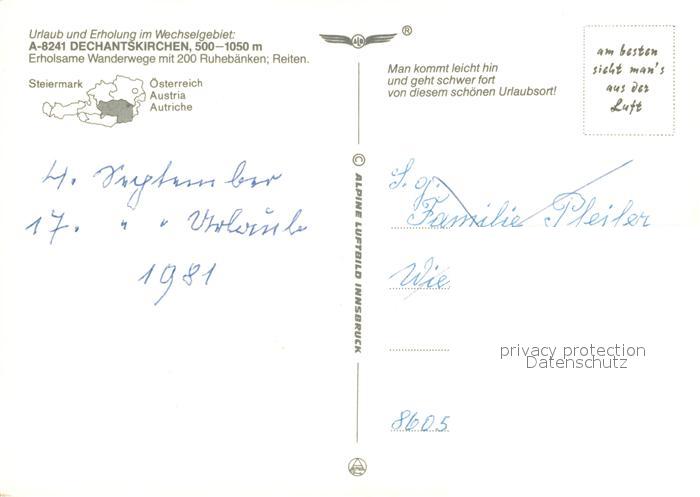 Urlaub und Erholung im Wechselgebiet:
A-8241 DECHANTSKIRCHEN, 500—1050 m
Erholsame Wanderwege mit 200 Ruhebänken; Reiten.
Steiermark
Österreich
Austria
Autriche
4. September
17. " " Urlaub
1981
®
Man kommt leicht hin
und geht schwer fort
von diesem schönen Urlaubsort!
am besten
sieht man's
aus der
Luft
© ALPINE LUFTBILD INNSBRUCK
S. g.
Familie Pleiler
Wie
privacy protection
Datenschutz
8605